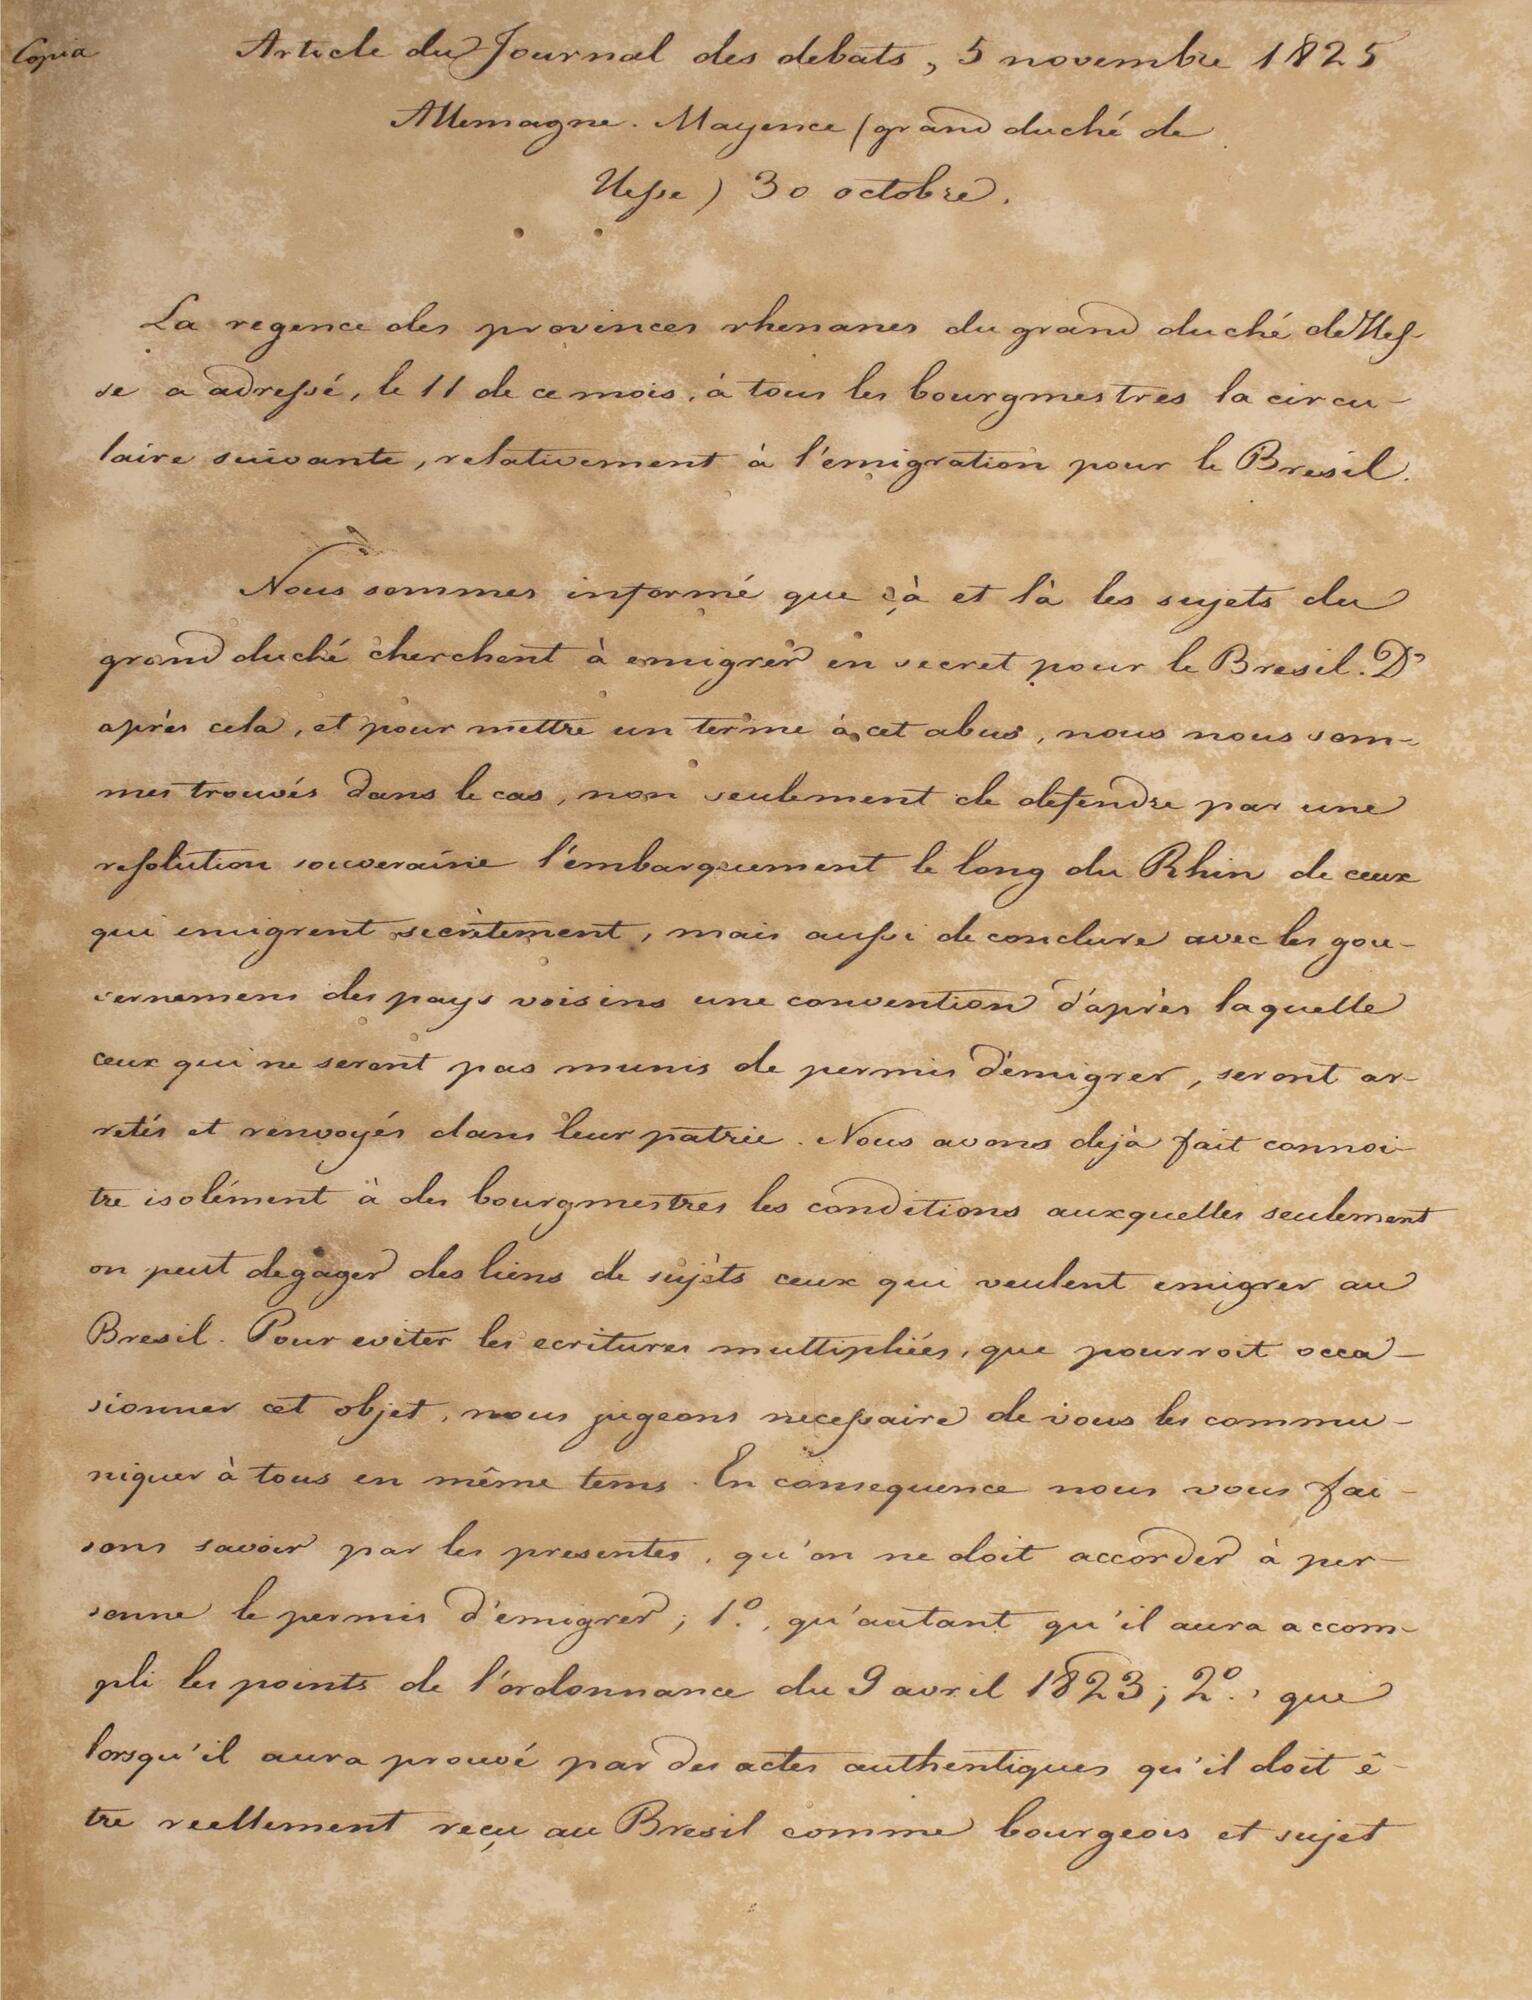 Copia
Article du Journal des debats, 5 novembre 1825
Allemagne. Mayence (grand duché de
Hesse) 30 octobre.
La regence des provinces rhenanes du grand duché de Hes-
se a adressé, le 11 de ce mois, à tous les bourgmestres la circu-
laire suivante, relativement à l'émigration pour le Bresil.
Nous sommes informé que çà et là les sujets du
grand duché cherchent à emigrer en secret pour le Bresil. D'
après cela, et pour mettre un terme à cet abus, nous nous som-
mes trouvés dans le cas, non seulement de defendre par une
resolution souveraine l'embarquement le long du Rhin de ceux
qui emigrent secrètement, mais aussi de conclure avec les gou-
vernemens des pays voisins une convention d'après laquelle
ceux qui ne seront pas munis de permis d'émigrer, seront ar-
retés et renvoyés dans leur patrie. Nous avons dejà fait connoi-
tre isolément à des bourgmestres les conditions auxquelles seulement
on peut degager des liens de sujèts ceux qui veulent emigrer au
Bresil. Pour eviter les ecritures multipliées, que pourroit occa-
sionner cet objet, nous jugeons necessaire de vous les commu-
niquer à tous en même tems. En consequence nous vous fai-
sons savoir par les presentes, qu'on ne doit accorder à per-
sonne le permis d'émigrer; 1º., qu'autant qu'il aura accom-
pli les points de l'ordonnance du 9 avril 1823; 2º., que
lorsqu'il aura prouvé par des actes authentiques qu'il doit ê-
tre reellement reçu au Bresil comme bourgeois et sujet